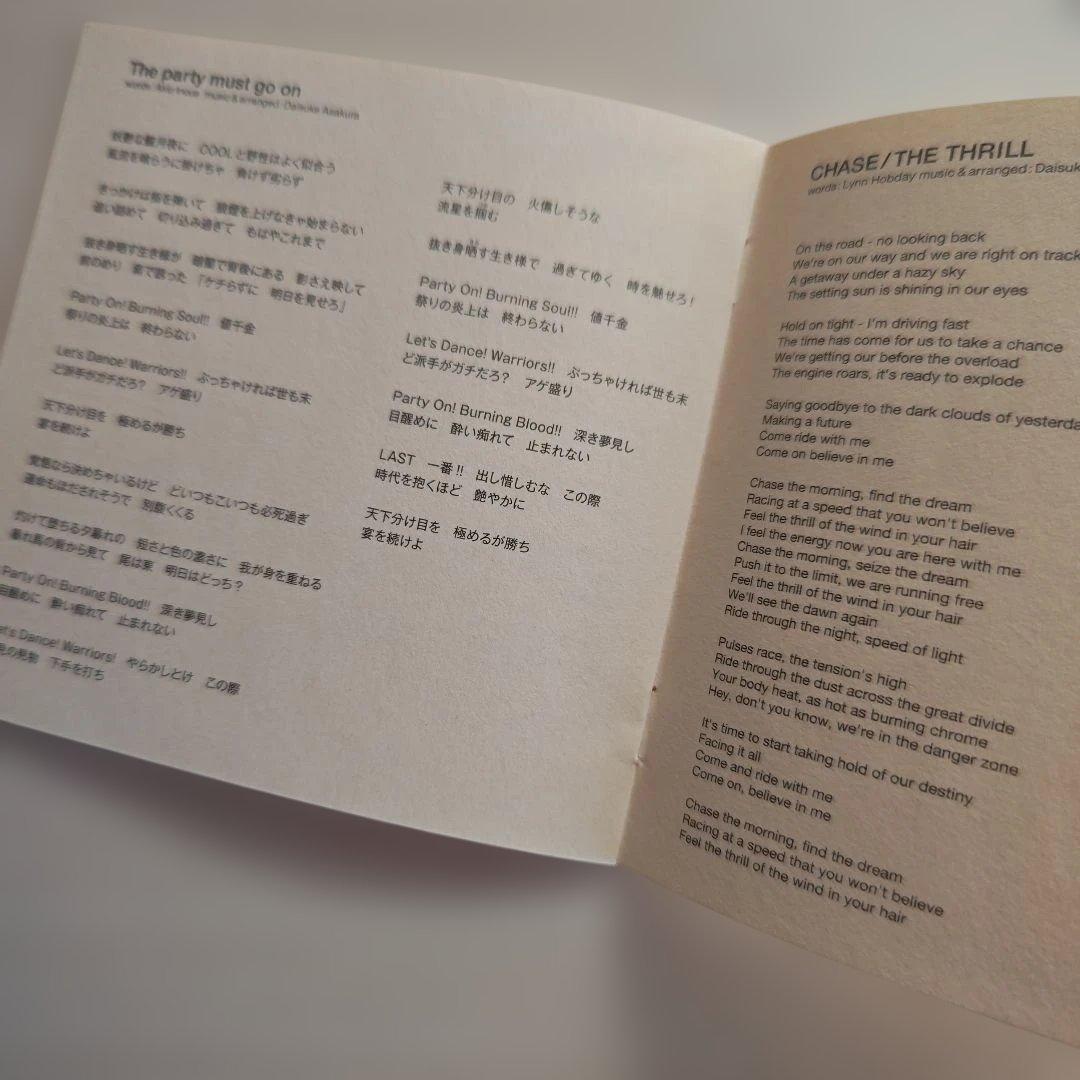 The party must go on
words : Akio Inoue music & arranged : Daisuke Asakura
朧月夜に COOLと野性はよく似合う
喰らうに掛けちゃ 負けず劣らず
きっかけは指を弾いて 狼煙を上げなきゃ始まらない
追い詰めて 切り込み過ぎて もはやこれまで
抜き身晒す生き様が 背後にある 影さえ映して
前のめり 嗤った 「ケチらずに 明日を見せろ」
Party On! Burning Soul!! 値千金
祭りの炎上は 終わらない
Let's Dance! Warriors!! ぶっちゃければ世も末
ど派手がガチだろ? アゲ盛り
天下分け目を 極めるが勝ち
宴を続けよ
覚悟なら決めちゃいるけど どいつもこいつも必死過ぎ
運命もほだされそうで 別腹くくる
灼けて墜ちる夕暮れの 短さと色の濃さに 我が身を重ねる
暴れ馬の背から見て 尾は東 明日はどっち?
Party On! Burning Blood!! 深き夢見し
目醒めに 酔い痴れて 止まれない
Let's Dance! Warriors! やらかしとけ この際
下手を打ち
天下分け目の 火傷しそうな
流星を掴む
抜き身晒す生き様で 過ぎてゆく 時を魅せろ!
Party On! Burning Soul!! 値千金
祭りの炎上は 終わらない
Let's Dance! Warriors!! ぶっちゃければ世も末
ど派手がガチだろ? アゲ盛り
Party On! Burning Blood!! 深き夢見し
目醒めに 酔い痴れて 止まれない
LAST 一番!! 出し惜しむな この際
時代を抱くほど 艶やかに
天下分け目を 極めるが勝ち
宴を続けよ
CHASE / THE THRILL
words : Lynn Hobday music & arranged : Daisuk
On the road - no looking back
We're on our way and we are right on track
A getaway under a hazy sky
The setting sun is shining in our eyes
Hold on tight - I'm driving fast
The time has come for us to take a chance
We're getting our before the overload
The engine roars, it's ready to explode
Saying goodbye to the dark clouds of yesterda
Making a future
Come ride with me
Come on believe in me
Chase the morning, find the dream
Racing at a speed that you won't believe
Feel the thrill of the wind in your hair
I feel the energy now you are here with me
Chase the morning, seize the dream
Push it to the limit, we are running free
Feel the thrill of the wind in your hair
We'll see the dawn again
Ride through the night, speed of light
Pulses race, the tension's high
Ride through the dust across the great divide
Your body heat, as hot as burning chrome
Hey, don't you know, we're in the danger zone
It's time to start taking hold of our destiny
Facing it all
Come and ride with me
Come on, believe in me
Chase the morning, find the dream
Racing at a speed that you won't believe
Feel the thrill of the wind in your hair